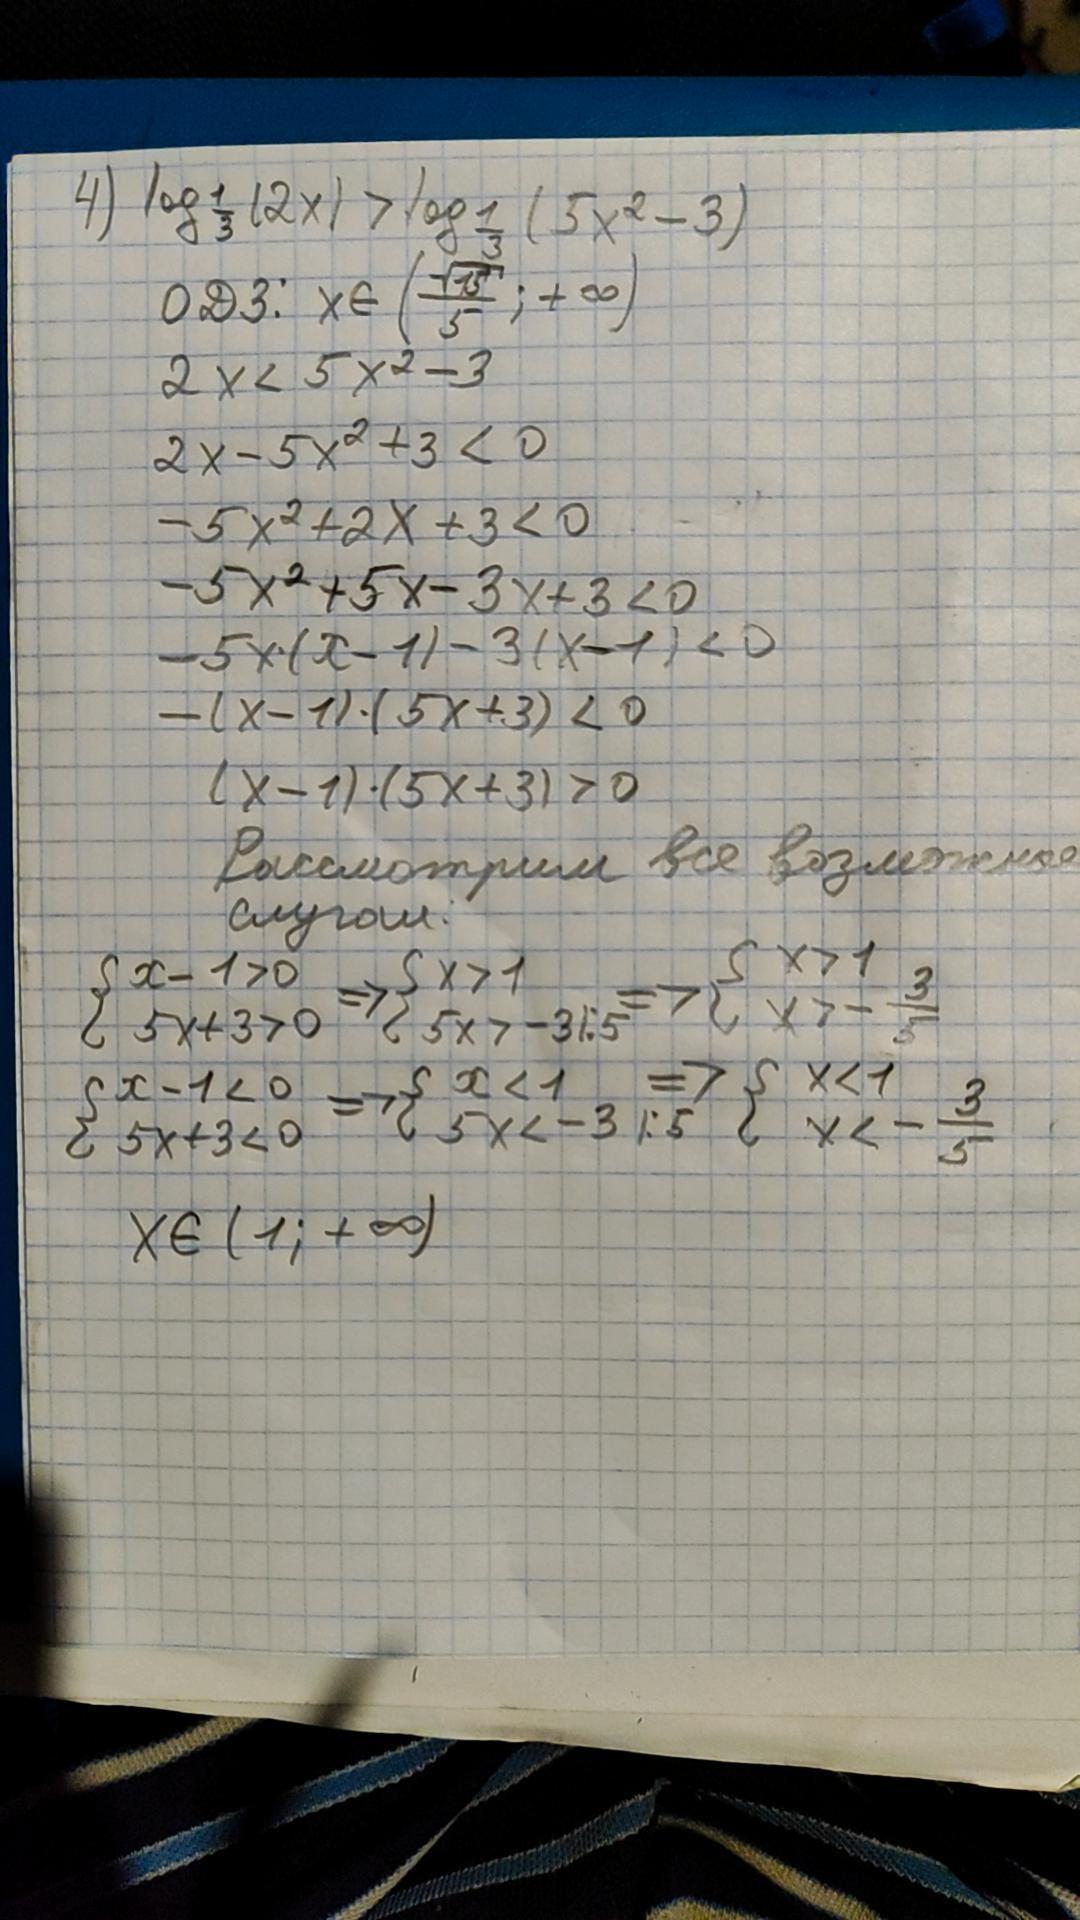 4) log 1/3 (2x) > log 1/3 (5x² - 3)
ОДЗ: x∈(√15/5; +∞)
2x < 5x² - 3
2x - 5x² + 3 < 0
-5x² + 2x + 3 < 0
-5x² + 5x - 3x + 3 < 0
-5x·(x-1) - 3(x-1) < 0
-(x-1)·(5x+3) < 0
(x-1)·(5x+3) > 0
Рассмотрим все возможные
случаи:
{x-1>0 => {x>1 => {x>1
{5x+3>0 {5x>-3|:5 {x>-3/5
{x-1<0 => {x<1 => {x<1
{5x+3<0 {5x<-3|:5 {x<-3/5
X∈(1; +∞)